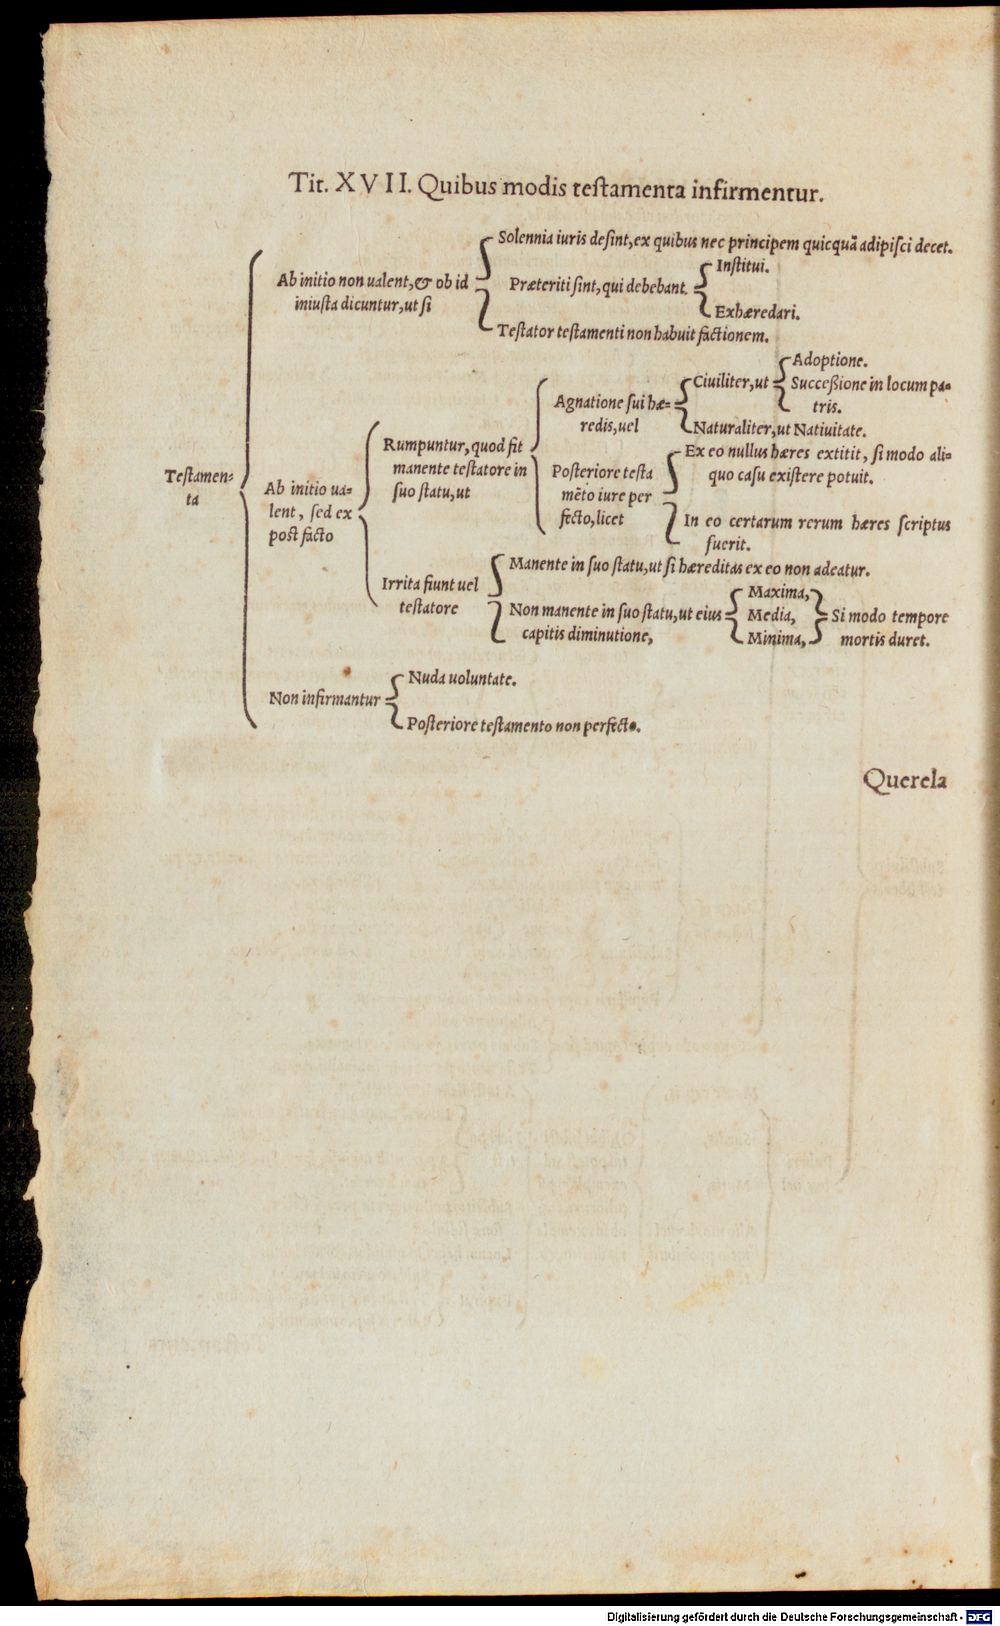 Tit. XVII. Quibus modis teſtamenta infirmentur.
Solennia iuris deſint, ex quibus nec principem quicquã adipiſci decet.
Ab initio non ualent, & ob id
iniuſta dicuntur, ut ſi
Præteriti ſint, qui debebant.
Inſtitui.
Exhæredari.
Teſtator teſtamenti non habuit factionem.
Teſtamen-
ta
Ab initio ua-
lent, ſed ex
poſt facto
Rumpuntur, quod fit
manente teſtatore in
ſuo ſtatu, ut
Agnatione ſui hæ-
redis, uel
Ciuiliter, ut
Adoptione.
Succeßione in locum pa-
tris.
Naturaliter, ut Natiuitate.
Poſteriore teſta
mẽto iure per
fecto, licet
Ex eo nullus hæres extitit, ſi modo ali-
quo caſu exiſtere potuit.
In eo certarum rerum hæres ſcriptus
fuerit.
Irrita fiunt uel
teſtatore
Manente in ſuo ſtatu, ut ſi hæreditas ex eo non adeatur.
Non manente in ſuo ſtatu, ut eius
capitis diminutione,
Maxima,
Media,
Minima,
Si modo tempore
mortis duret.
Non infirmantur
Nuda uoluntate.
Poſteriore teſtamento non perfecto.
Querela
Digitalisierung gefördert durch die Deutsche Forschungsgemeinschaft - DFG